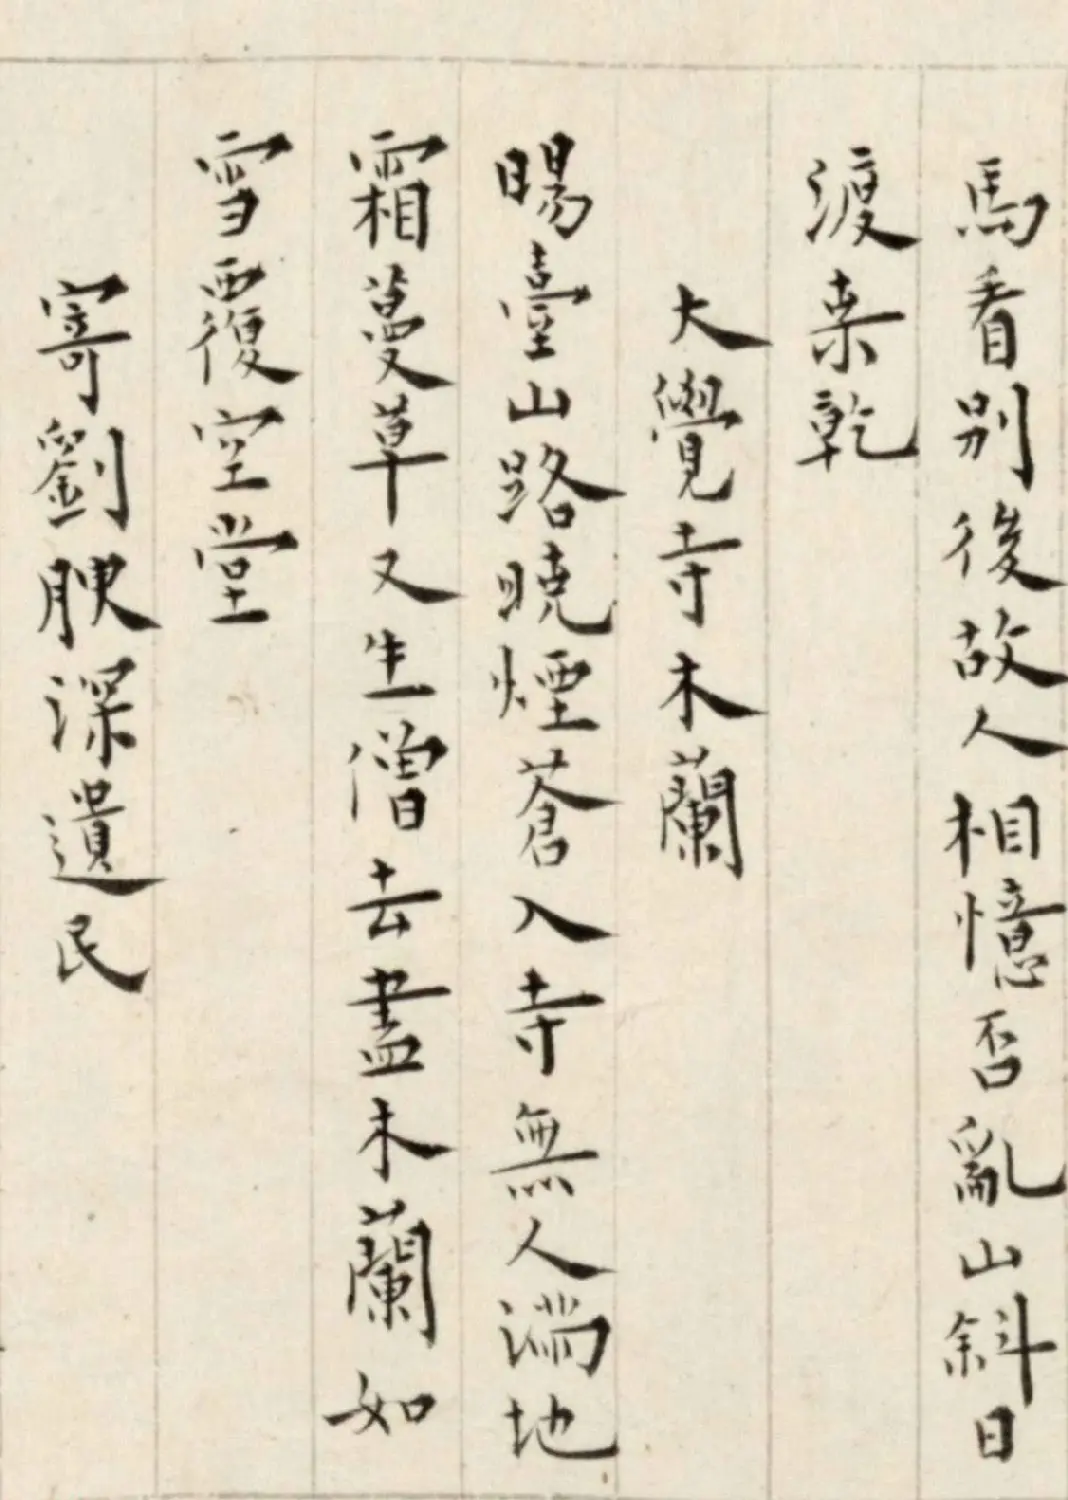 馬看別後故人相憶否亂山斜日
渡桑乾
大覺寺木蘭
暘臺山路曉煙蒼入寺無人滿地
霜蔓草又生僧去盡木蘭如
雪覆空堂
寄劉腴深遺民